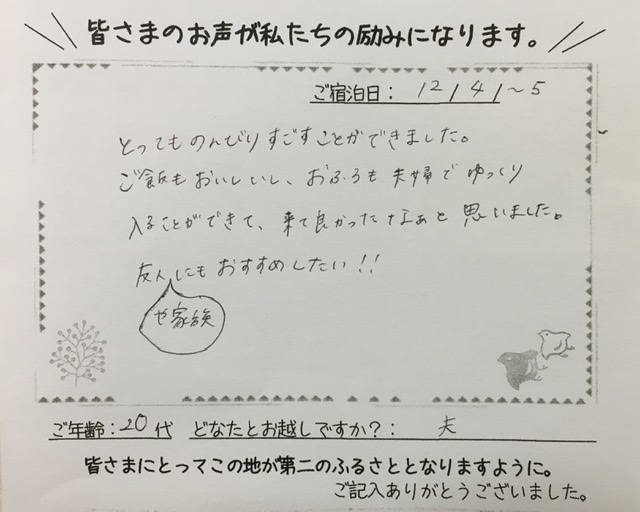 皆さまのお声が私たちの励みになります。
ご宿泊日: 12/4/~5
とってものんびりすごすことができました。
ご飯もおいしいし、おふろも夫婦でゆっくり
入ることができて、来て良かったなぁと思いました。
友人にもおすすめしたい!!
や家族
ご年齢:20代 どなたとお越しですか?: 夫
皆さまにとってこの地が第二のふるさととなりますように。
ご記入ありがとうございました。